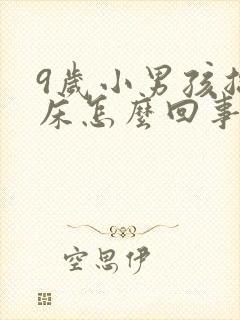 9歲小男孩
床怎麼回事
空思伊